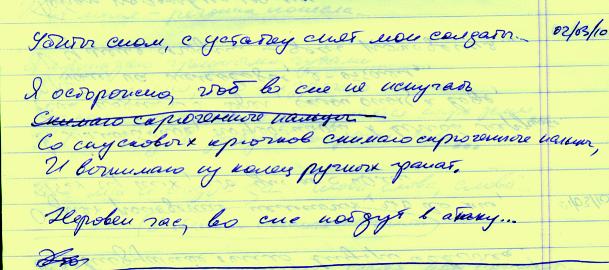 Убиты сном, с устатку спят мои солдаты... 02/03/10
Я осторожно, чтоб во сне не испугать
Снимаю скрюченные пальцы
Со спусковых крючков снимаю скрюченные пальцы,
И вынимаю из колец ручных гранат.
Неровен час, во сне пойдут в атаку...